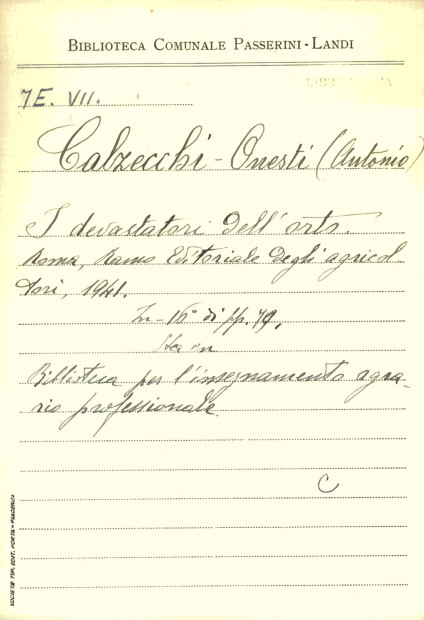 BIBLIOTECA COMUNALE PASSERINI-LANDI
7E. VII.
Calzecchi-Onesti (Antonio)
I devastatori dell'orto.
Roma, Ramo Editoriale degli agricol-
tori, 1941.
In-16° di pp. 79.
Sta in
Biblioteca per l'insegnamento agra-
rio professionale.
C
SOCIETÀ TIP. EDIT. PORTA - PIACENZA